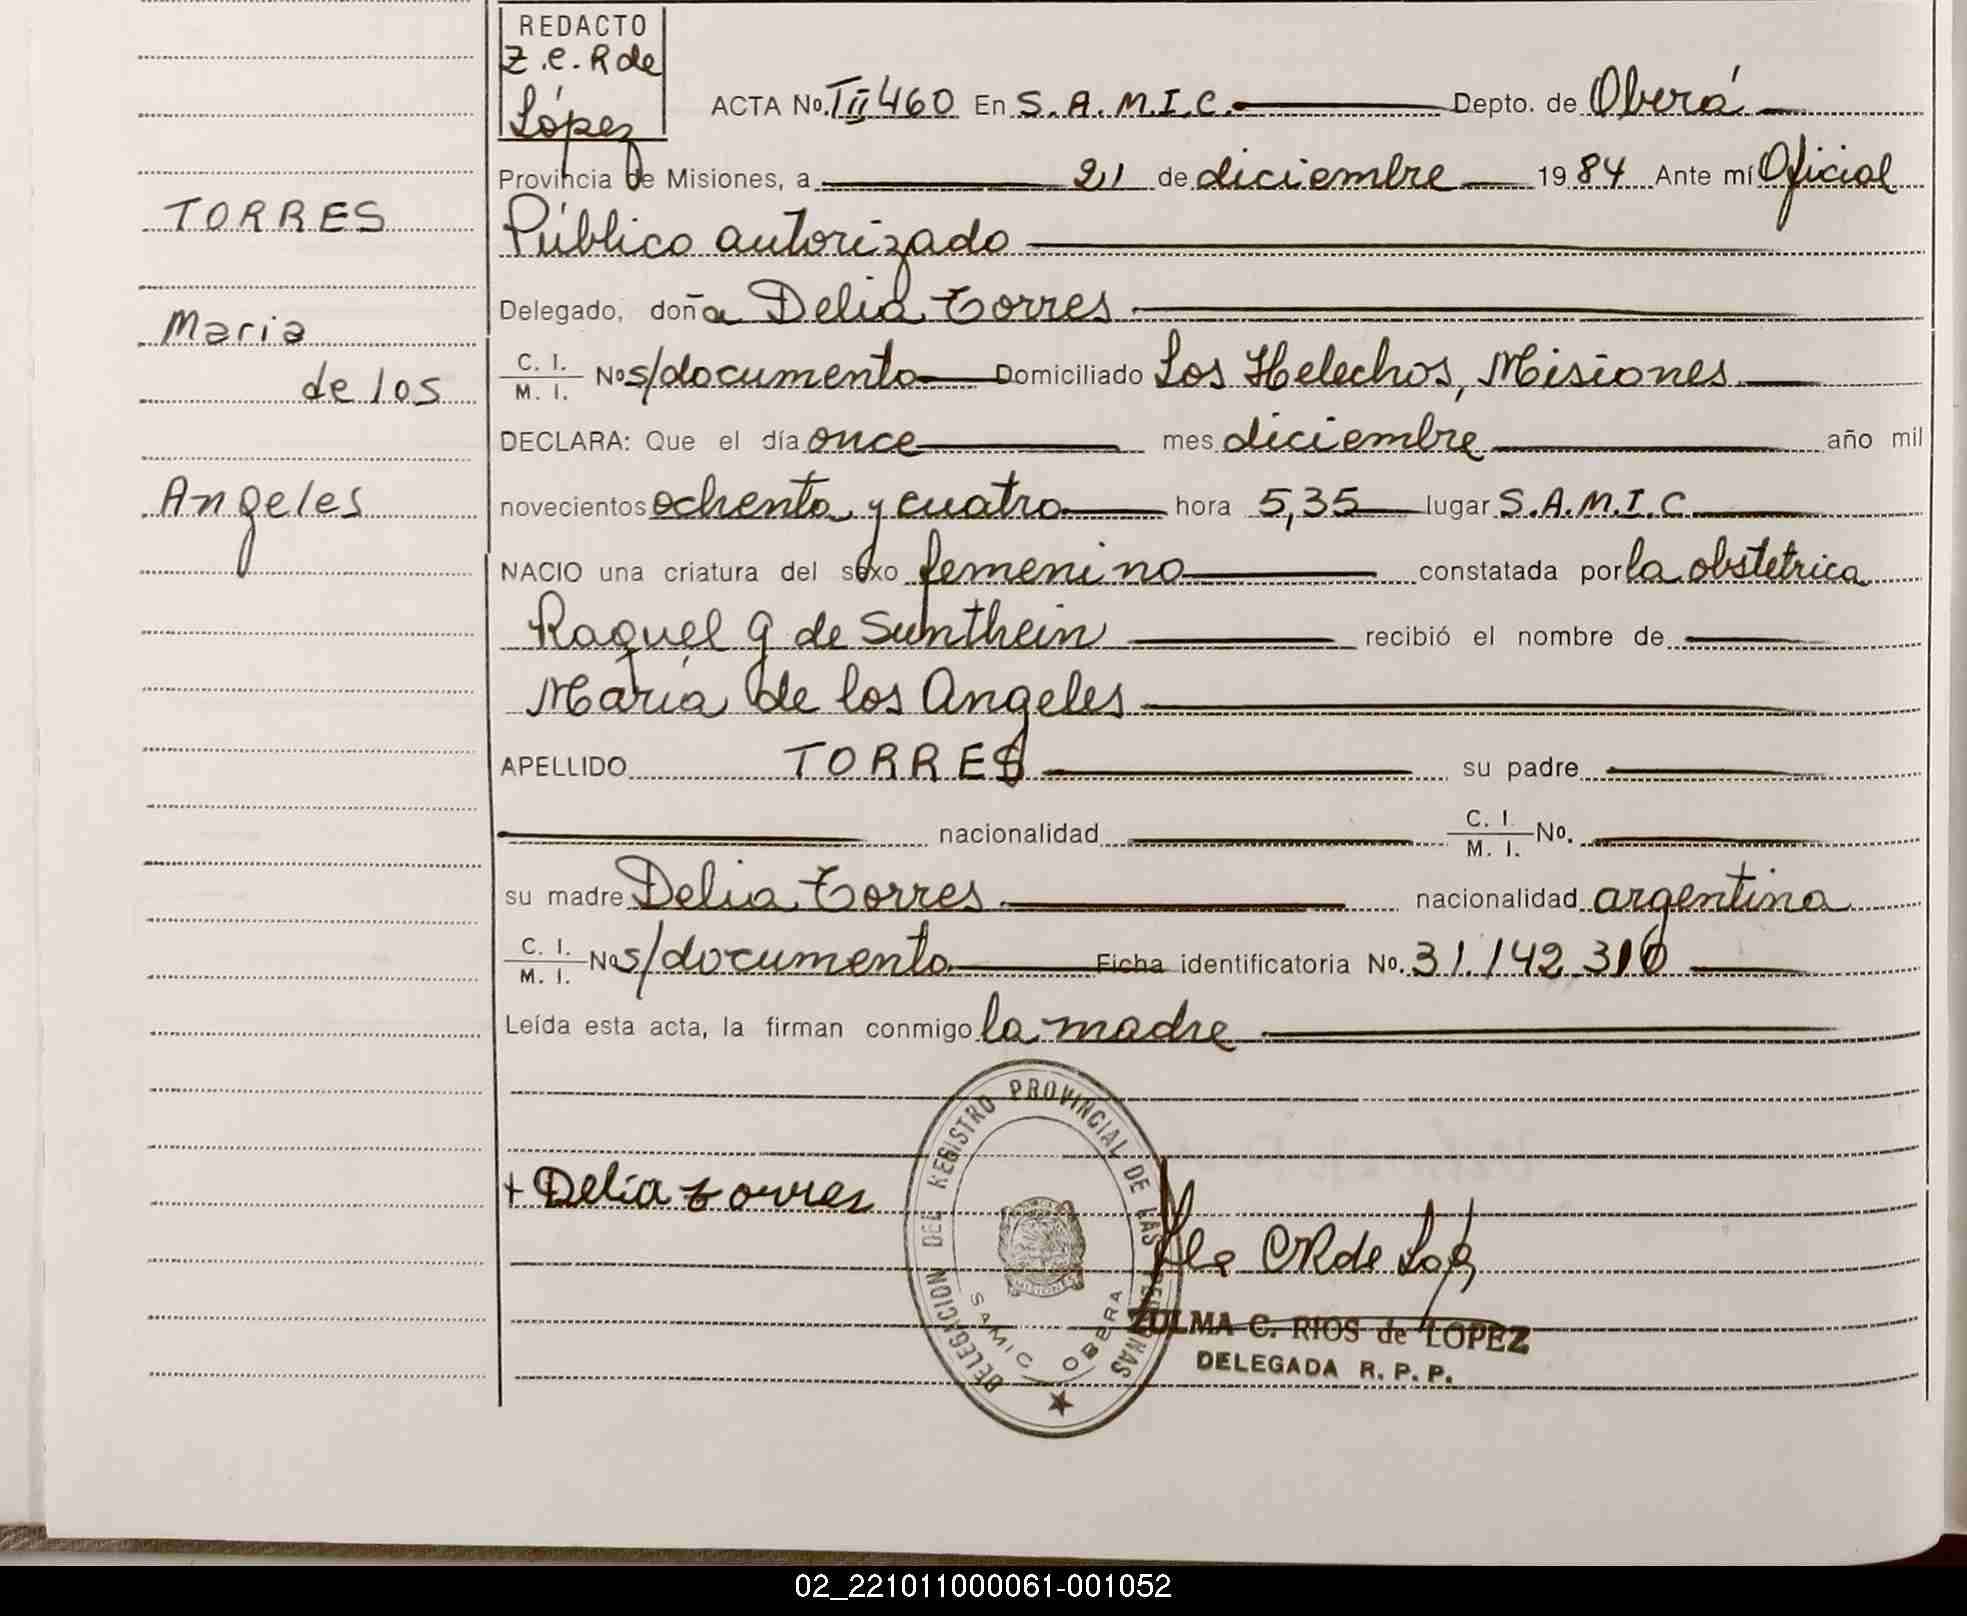 REDACTO
Z.C.R de
López
ACTA No. T II 460 En S.A.M.I.C. Depto. de Oberá
Provincia de Misiones, a 21 de diciembre 1984 Ante mí Oficial
Público autorizado
Delegado, doña Delia Torres
C. I. / M. I. No s/documento Domiciliado Los Helechos, Misiones
DECLARA: Que el día once mes diciembre año mil
novecientos ochenta y cuatro hora 5,35 lugar S.A.M.I.C
NACIO una criatura del sexo femenino constatada por la obstetrica
Raquel G de Sunthein recibió el nombre de
María de los Angeles
APELLIDO TORRES su padre
nacionalidad C. I. / M. I. No.
su madre Delia Torres nacionalidad argentina
C. I. / M. I. No s/documento Ficha identificatoria No. 31.142.310
Leída esta acta, la firman conmigo la madre
TORRES
Maria
de los
Angeles
+ Delia torres
DELEGACION DEL REGISTRO PROVINCIAL DE LAS PERSONAS
MISIONES
SAMIC OBERA
ZULMA C. RIOS de LOPEZ
DELEGADA R. P. P.
02_221011000061-001052